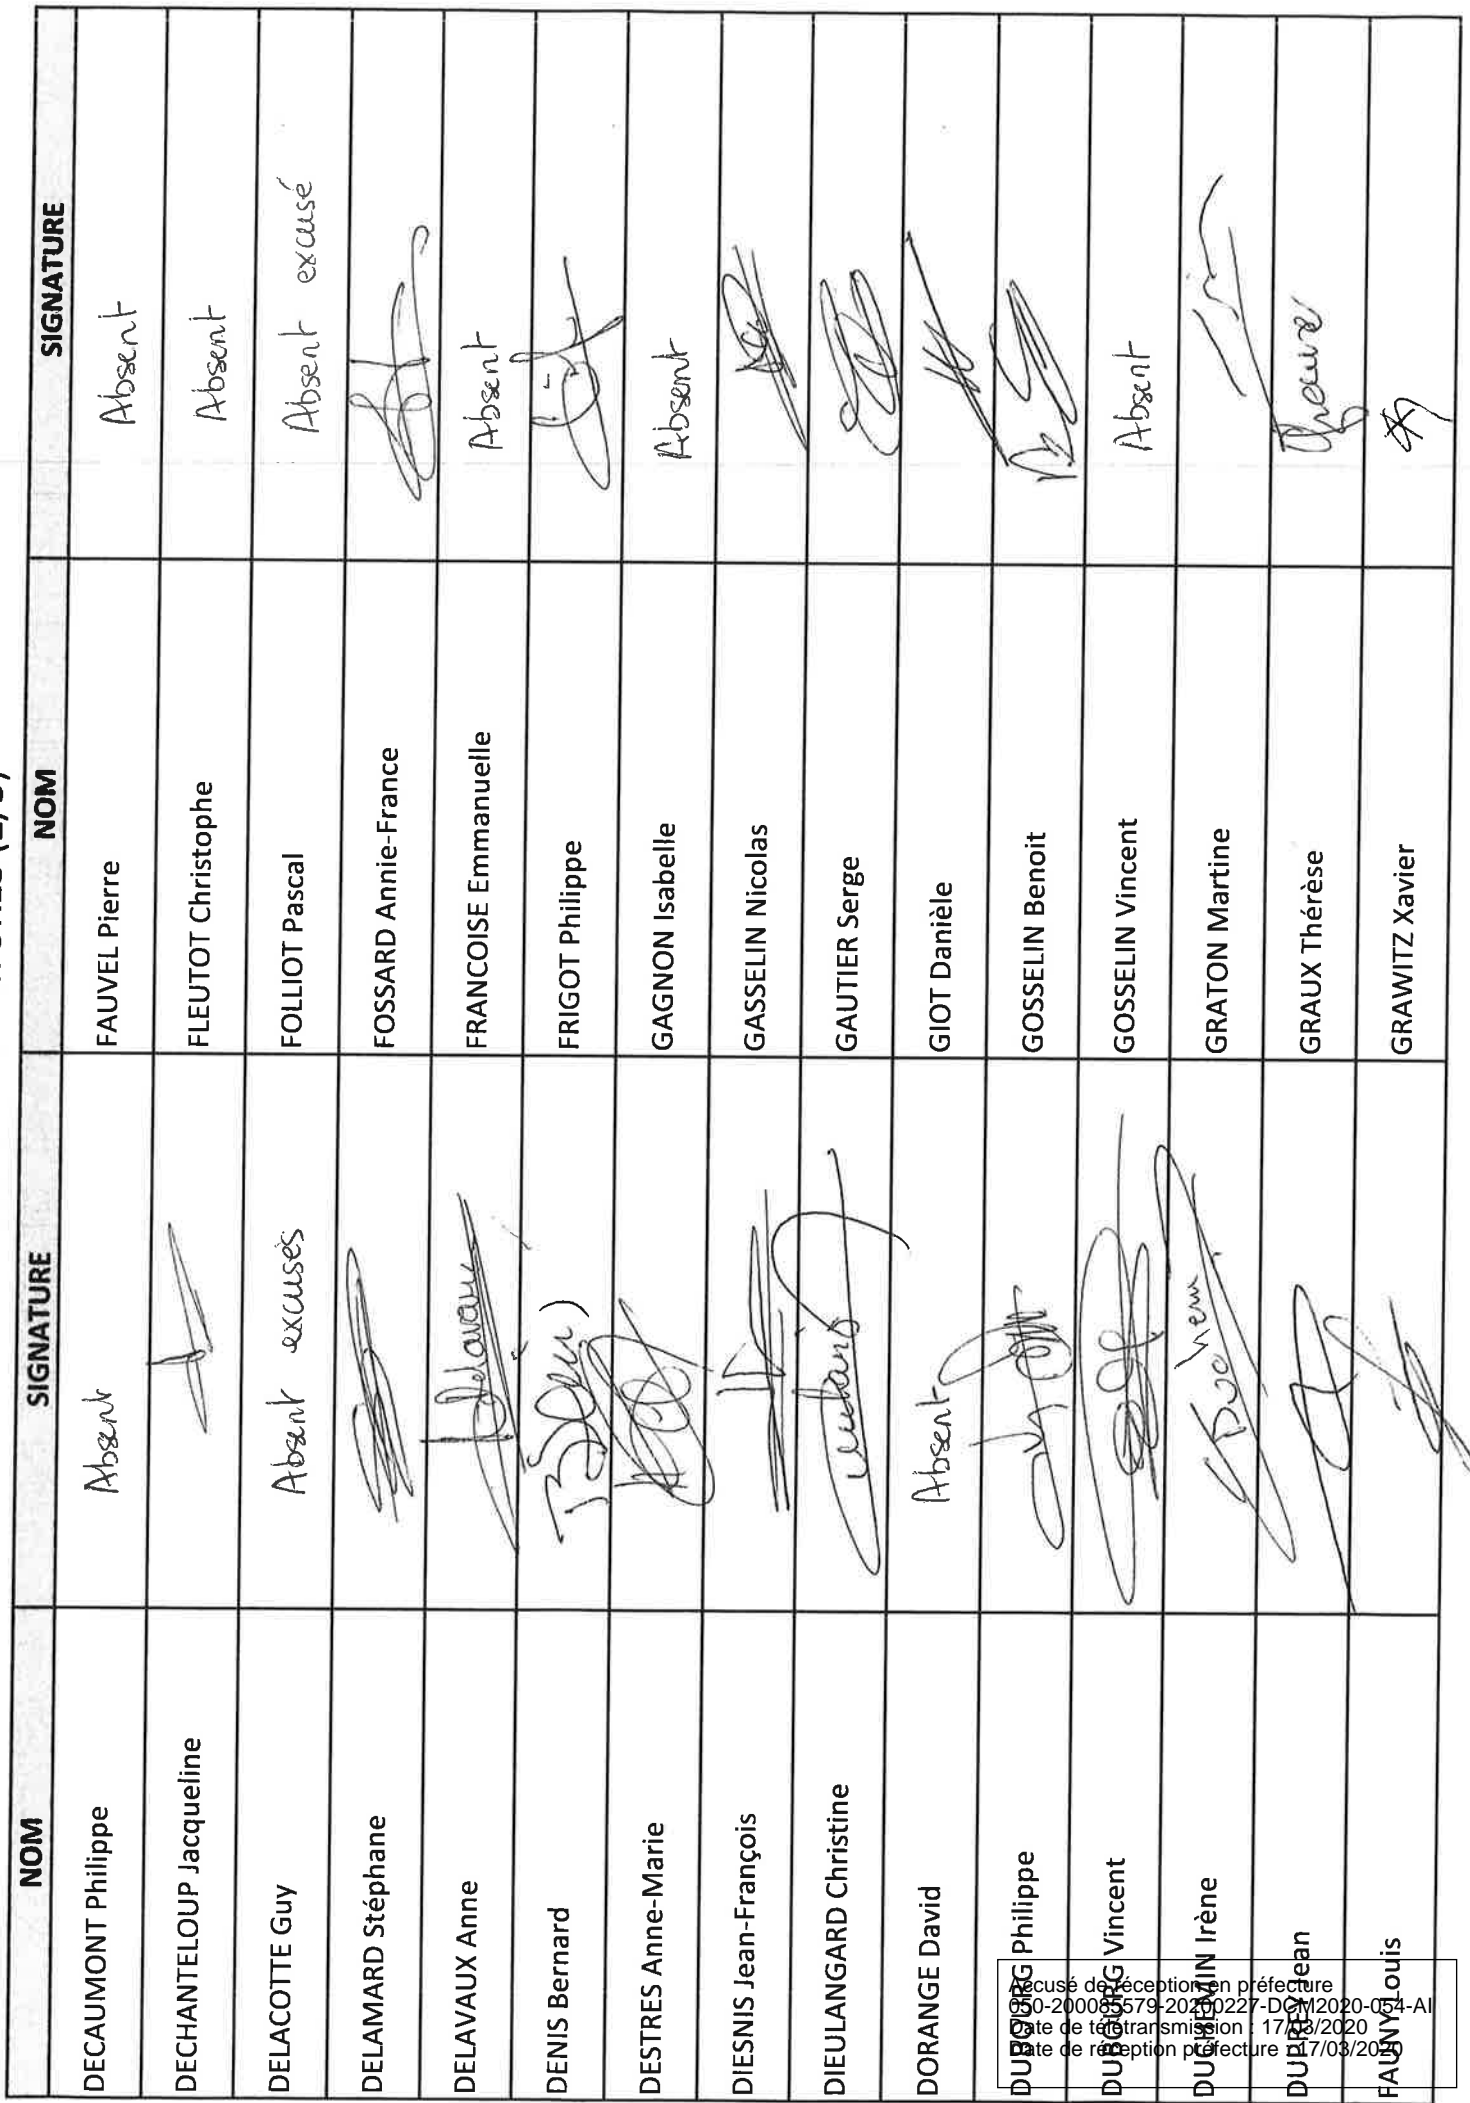 NOM SIGNATURE NOM SIGNATURE
DECAUMONT Philippe Absent FAUVEL Pierre Absent
DECHANTELOUP Jacqueline FLEUTOT Christophe Absent
DELACOTTE Guy Absent excusés FOLLIOT Pascal Absent excusé
DELAMARD Stéphane FOSSARD Annie-France
DELAVAUX Anne FRANCOISE Emmanuelle Absent
DENIS Bernard FRIGOT Philippe
DESTRES Anne-Marie GAGNON Isabelle Absent
DIESNIS Jean-François GASSELIN Nicolas
DIEULANGARD Christine GAUTIER Serge
DORANGE David Absent GIOT Danièle
DUBOURG Philippe GOSSELIN Benoit
DUBOURG Vincent GOSSELIN Vincent Absent
DUCHEMIN Irène GRATON Martine
DUPREY Jean GRAUX Thérèse
FAUNY Louis GRAWITZ Xavier
Accusé de réception en préfecture
050-200085579-20200227-DCM2020-054-AI
Date de télétransmission : 17/03/2020
Date de réception préfecture : 17/03/2020